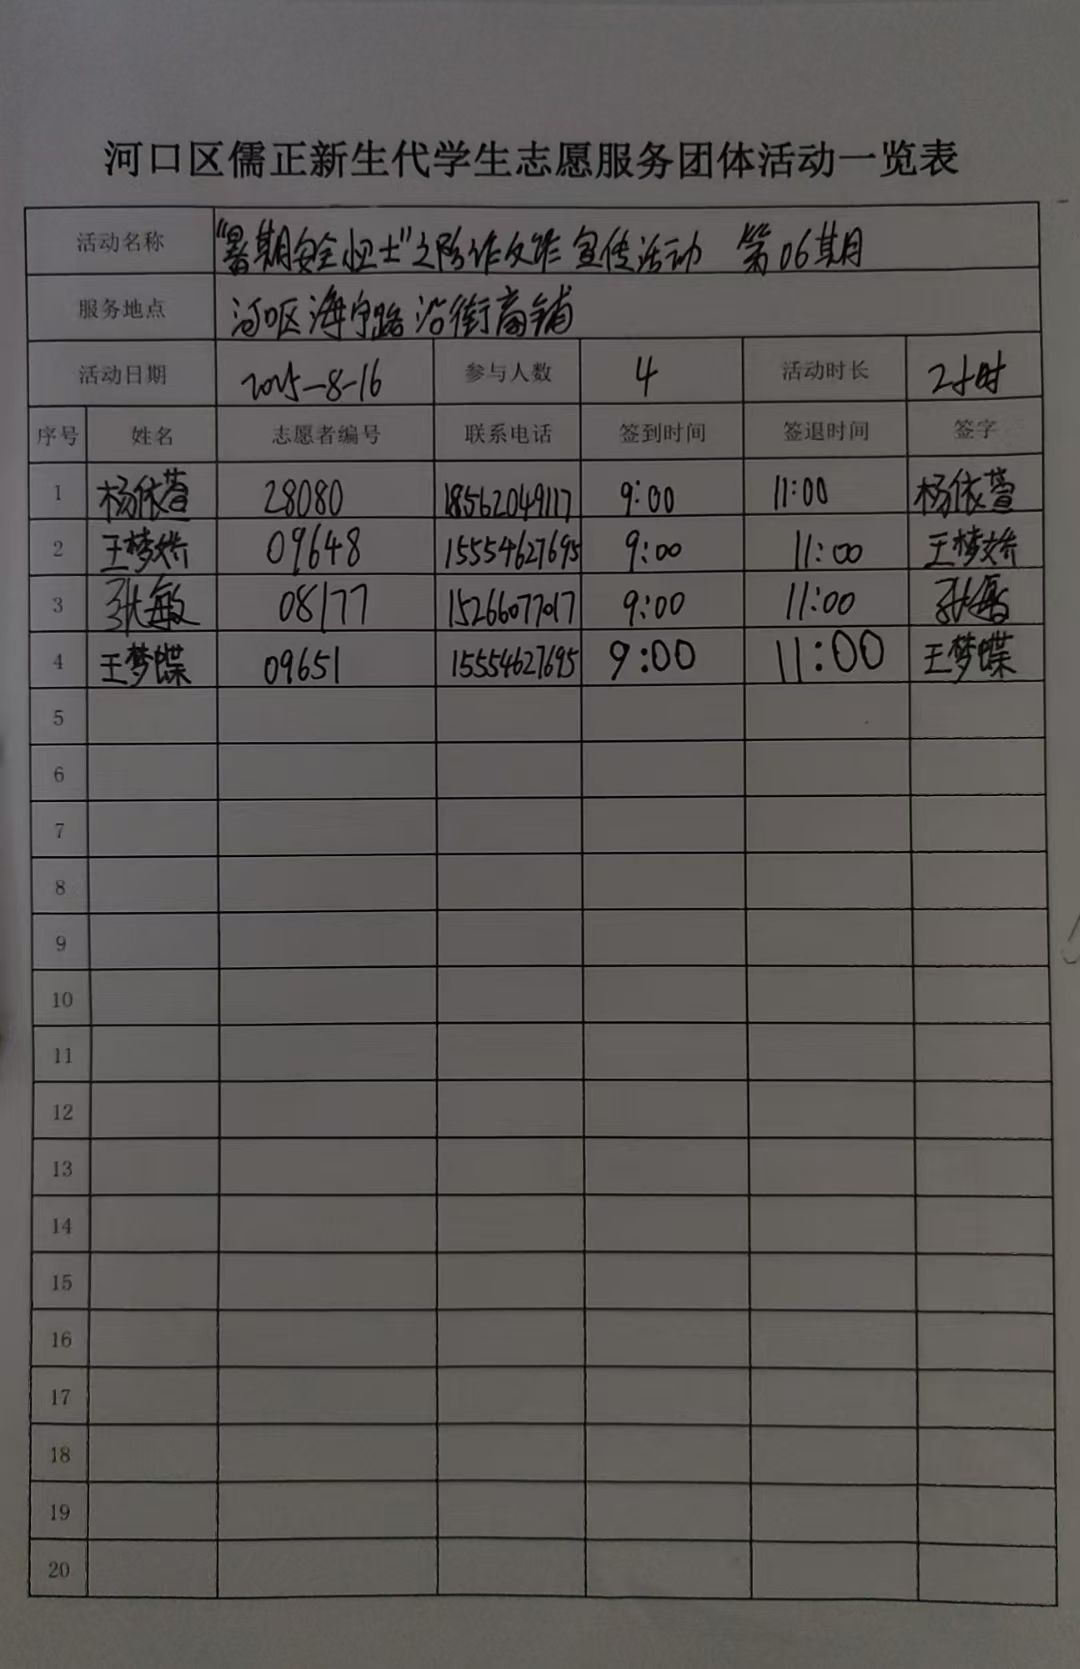 河口区儒正新生代学生志愿服务团体活动一览表
活动名称 "暑期安全卫士"之防诈反诈宣传活动 第06期
服务地点 河口区海宁路沿街商铺
活动日期 2025-8-16 参与人数 4 活动时长 2小时
序号 姓名 志愿者编号 联系电话 签到时间 签退时间 签字
1 杨依萱 28080 18562049117 9:00 11:00 杨依萱
2 王梦娇 09648 15554627695 9:00 11:00 王梦娇
3 张敏 08177 15266077017 9:00 11:00 张敏
4 王梦蝶 09651 15554627695 9:00 11:00 王梦蝶
5
6
7
8
9
10
11
12
13
14
15
16
17
18
19
20